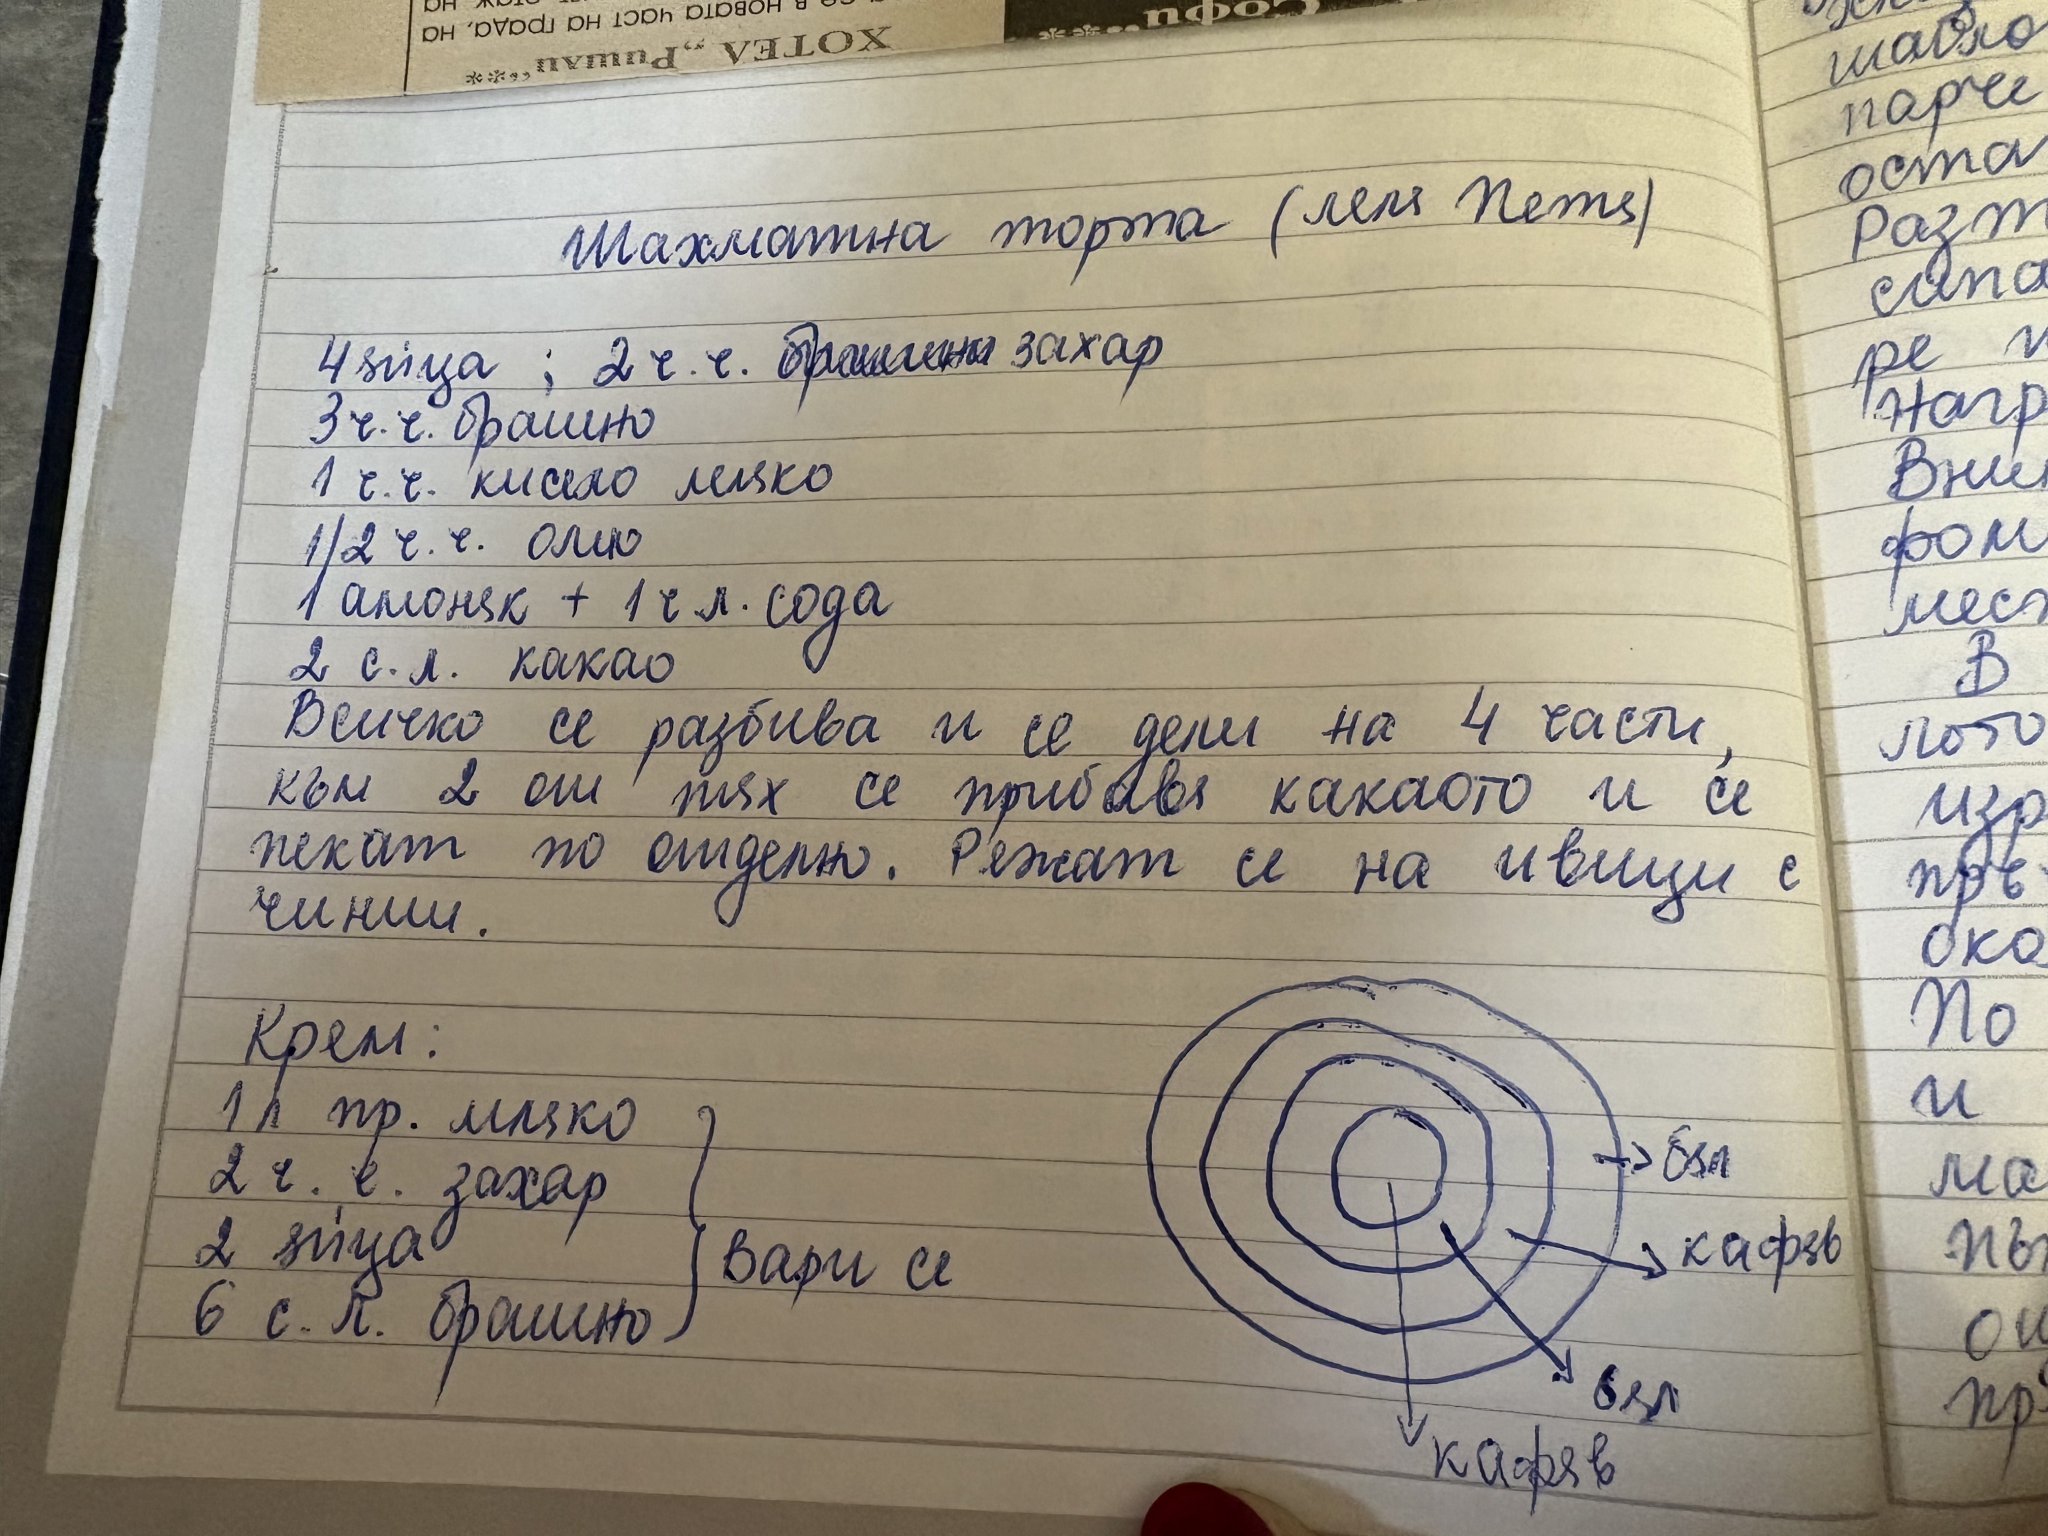 се в новата част на града, на
ХОТЕЛ „Ришли"****
Шахматна торта (леля Петя)
4 яйца ; 2 ч.ч. захар
3 ч.ч. брашно
1 ч.ч. кисело мляко
1/2 ч.ч. олио
1 амоняк + 1 ч л. сода
2 с.л. какао
Всичко се разбива и се дели на 4 части,
към 2 от тях се прибавя какаото и се
пекат по отделно. Режат се на ивици с
чинии.
Крем:
1 л пр. мляко
2 ч. ч. захар
2 яйца
6 с. л. брашно
Вари се
бял
кафяв
бял
кафяв
шабло
парче
оста
Разт
сипа
ре
Нагр
Вни
фом
мест
В
лото
изр
пръ
око
По
и
ма